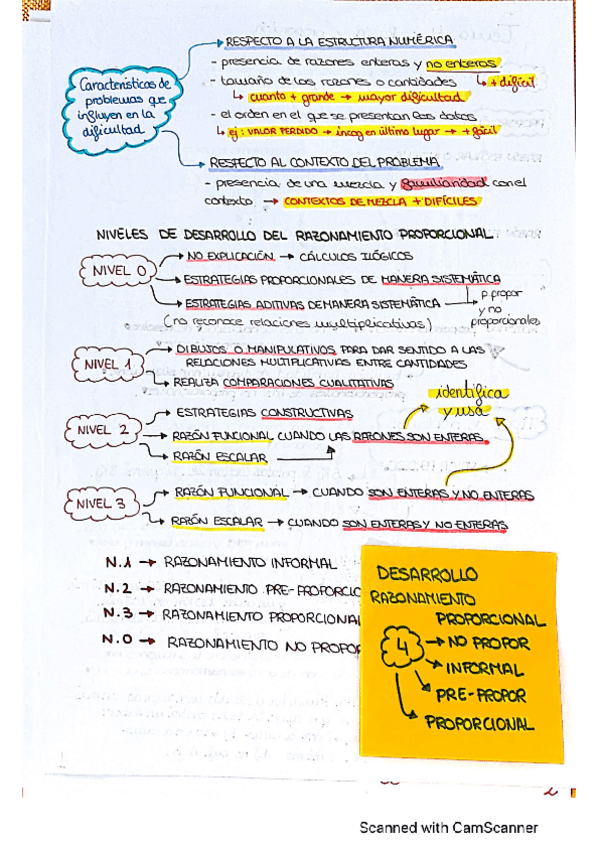 Características de
problemas que
influyen en la
dificultad
RESPECTO A LA ESTRUCTURA NUMÉRICA
- presencia de razones enteras y no enteras
- tamaño de las razones o cantidades ↳ + difícil
↳ cuanto + grande → mayor dificultad
- el orden en el que se presentan los datos
↳ ej: VALOR PERDIDO → incog en último lugar → + fácil
RESPECTO AL CONTEXTO DEL PROBLEMA
- presencia de una mezcla y familiaridad con el
contexto → CONTEXTOS DE MEZCLA + DIFÍCILES
NIVELES DE DESARROLLO DEL RAZONAMIENTO PROPORCIONAL
NIVEL 0
→ NO EXPLICACIÓN → CÁLCULOS ILÓGICOS
→ ESTRATEGIAS PROPORCIONALES DE MANERA SISTEMÁTICA
→ ESTRATEGIAS ADITIVAS DE MANERA SISTEMÁTICA → p. propor
y no
proporcionales
(no reconoce relaciones multiplicativas)
NIVEL 1
→ DIBUJOS O MANIPULATIVOS PARA DAR SENTIDO A LAS
RELACIONES MULTIPLICATIVAS ENTRE CANTIDADES
→ REALIZA COMPARACIONES CUALITATIVAS
identifica
y usa
NIVEL 2
→ ESTRATEGIAS CONSTRUCTIVAS
→ RAZÓN FUNCIONAL CUANDO LAS RAZONES SON ENTERAS
→ RAZÓN ESCALAR
NIVEL 3
→ RAZÓN FUNCIONAL → CUANDO SON ENTERAS Y NO ENTERAS
→ RAZÓN ESCALAR → CUANDO SON ENTERAS Y NO ENTERAS
N.1 → RAZONAMIENTO INFORMAL
N.2 → RAZONAMIENTO PRE-PROPORCIO
N.3 → RAZONAMIENTO PROPORCIONAL
N.0 → RAZONAMIENTO NO PROPOR
DESARROLLO
RAZONAMIENTO
PROPORCIONAL
4
→ NO PROPOR
→ INFORMAL
→ PRE-PROPOR
→ PROPORCIONAL
Scanned with CamScanner